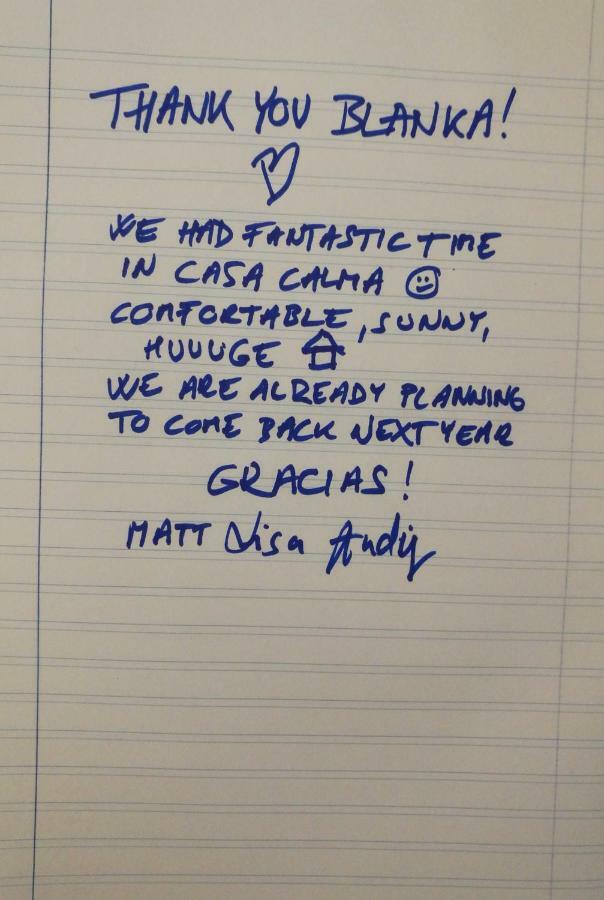 THANK YOU BLANKA!
WE HAD FANTASTIC TIME
IN CASA CALMA
COMFORTABLE, SUNNY,
HUUUGE
WE ARE ALREADY PLANNING
TO COME BACK NEXT YEAR
GRACIAS!
MATT Lisa Andy